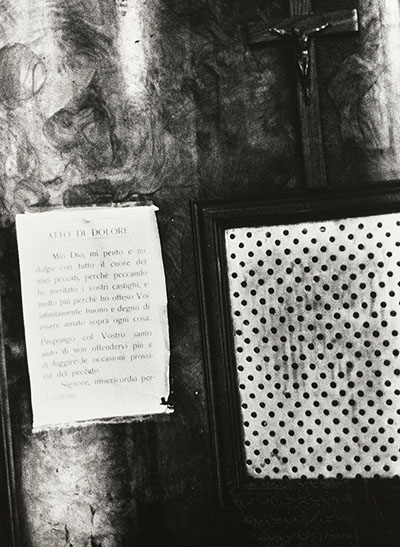 ATTO DI DOLORE
Mio Dio, mi pento e mi
dolgo con tutto il cuore dei
miei peccati, perchè peccando
ho meritato i vostri castighi, e
molto più perchè ho offeso Voi
infinitamente buono e degno di
essere amato sopra ogni cosa.
Propongo col Vostro santo
aiuto di non offendervi più e
di fuggire le occasioni prossi-
me del peccato.
Signore, misericordia per-
donatemi.